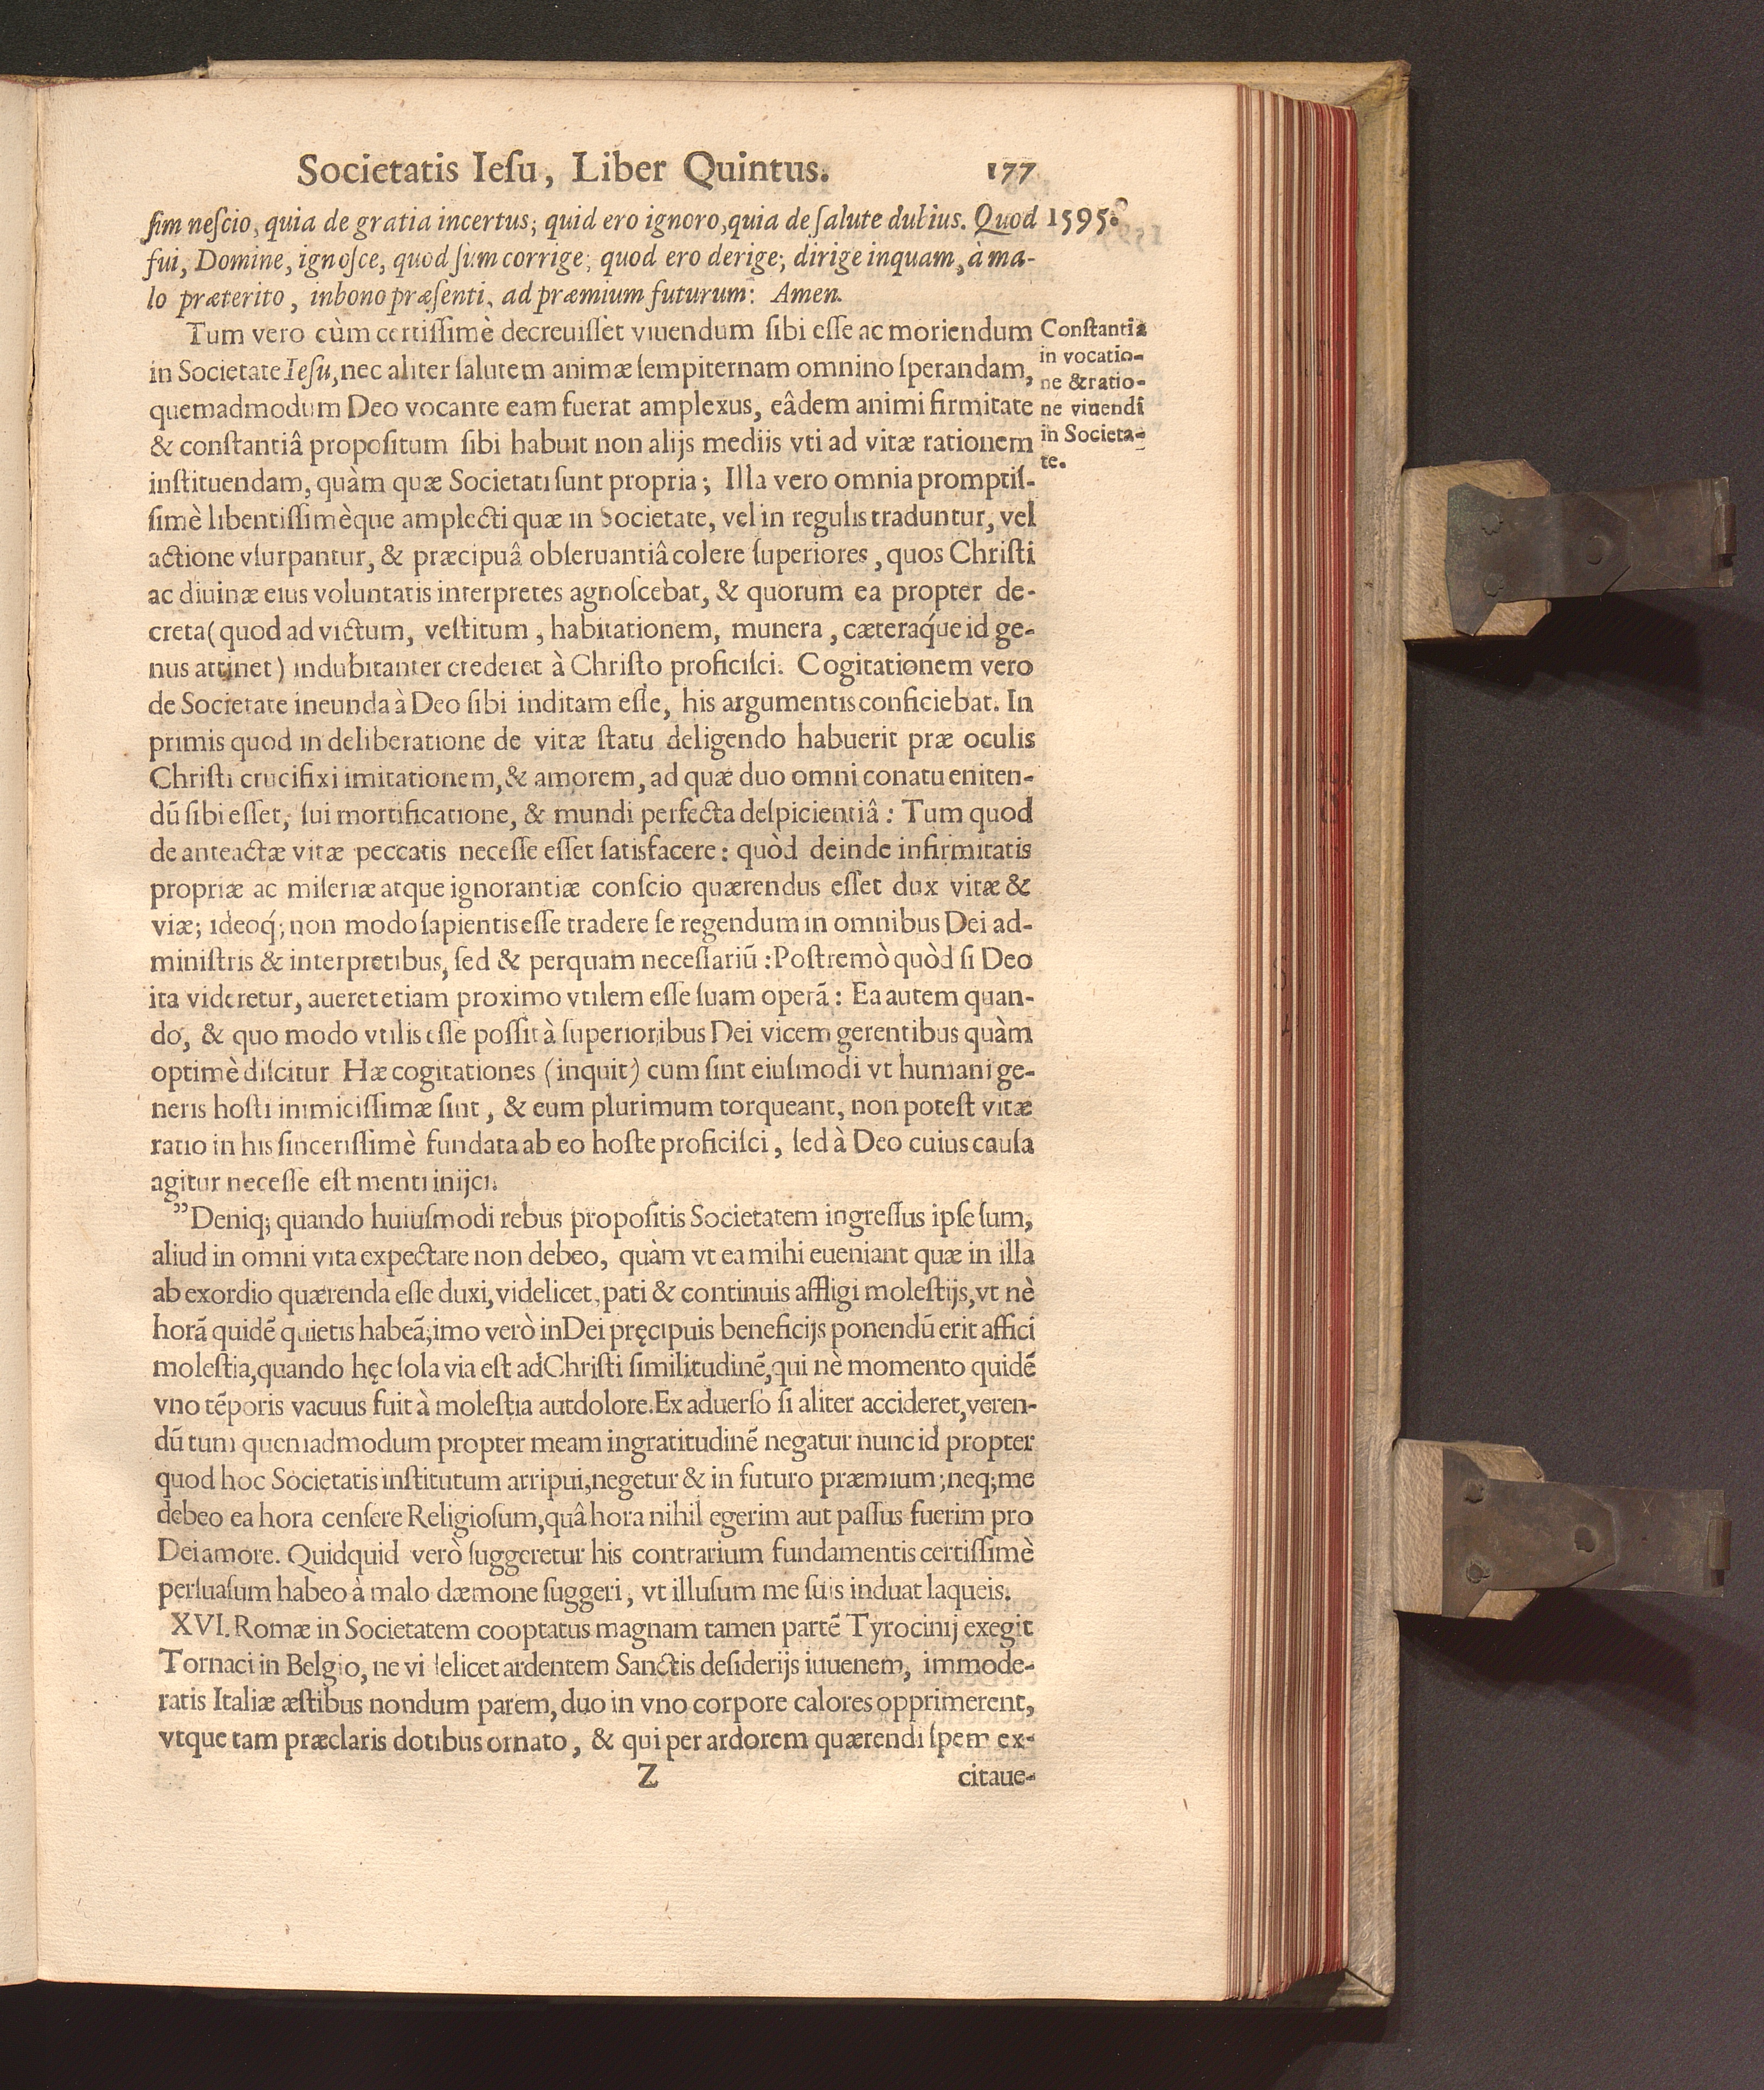 Societatis Ieſu, Liber Quintus. 177
ſim neſcio, quia de gratia incertus; quid ero ignoro, quia de ſalute dubius. Quod
1595.
fui, Domine, ignoſce, quod ſum corrige; quod ero derige; dirige inquam, à ma-
lo præterito, in bono præſenti, ad præmium futurum: Amen.
Tum vero cùm certiſſimè decreuiſſet viuendum ſibi eſſe ac moriendum
in Societate Ieſu, nec aliter ſalutem animæ ſempiternam omnino ſperandam,
quemadmodum Deo vocante eam fuerat amplexus, eâdem animi firmitate
& conſtantiâ propoſitum ſibi habuit non alijs mediis vti ad vitæ rationem
inſtituendam, quàm quæ Societati ſunt propria; Illa vero omnia promptiſ-
ſimè libentiſſimèque amplecti quæ in Societate, vel in regulis traduntur, vel
actione vſurpantur, & præcipuâ obſeruantiâ colere ſuperiores, quos Chriſti
ac diuinæ eius voluntatis interpretes agnoſcebat, & quorum ea propter de-
creta (quod ad victum, veſtitum, habitationem, munera, cæteraq́ue id ge-
nus attinet) indubitanter crederet à Chriſto proficiſci. Cogitationem vero
de Societate ineunda à Deo ſibi inditam eſſe, his argumentis conficiebat. In
primis quod in deliberatione de vitæ ſtatu deligendo habuerit præ oculis
Chriſti crucifixi imitationem, & amorem, ad quæ duo omni conatu eniten-
dũ ſibi eſſet, ſui mortificatione, & mundi perfecta deſpicientiâ: Tum quod
de anteactæ vitæ peccatis neceſſe eſſet ſatisfacere: quòd deinde infirmitatis
propriæ ac miſeriæ atque ignorantiæ conſcio quærendus eſſet dux vitæ &
viæ; ideoq́; non modo ſapientis eſſe tradere ſe regendum in omnibus Dei ad-
miniſtris & interpretibus, ſed & perquam neceſſariũ: Poſtremò quòd ſi Deo
ita videretur, aueret etiam proximo vtilem eſſe ſuam operã: Ea autem quan-
do, & quo modo vtilis eſſe poſſit à ſuperioribus Dei vicem gerentibus quàm
optimè diſcitur Hæ cogitationes (inquit) cum ſint eiuſmodi vt humani ge-
neris hoſti inimiciſſimæ ſint, & eum plurimum torqueant, non poteſt vitæ
ratio in his ſinceriſſimè fundata ab eo hoſte proficiſci, ſed à Deo cuius cauſa
agitur neceſſe eſt menti inijci.
Conſtantia
in vocatio-
ne & ratio-
ne viuendi
in Societa-
te.
”Deniq; quando huiuſmodi rebus propoſitis Societatem ingreſſus ipſe ſum,
aliud in omni vita expectare non debeo, quàm vt ea mihi eueniant quæ in illa
ab exordio quærenda eſſe duxi, videlicet, pati & continuis affligi moleſtijs, vt nè
horã quidẽ quietis habeã; imo verò in Dei pręcipuis beneficijs ponendũ erit affici
moleſtia, quando hęc ſola via eſt ad Chriſti ſimilitudinẽ, qui nè momento quidẽ
vno tẽporis vacuus fuit à moleſtia aut dolore. Ex aduerſo ſi aliter accideret, veren-
dũ tum quemadmodum propter meam ingratitudinẽ negatur nunc id propter
quod hoc Societatis inſtitutum arripui, negetur & in futuro præmium; neq; me
debeo ea hora cenſere Religioſum, quâ hora nihil egerim aut paſſus fuerim pro
Dei amore. Quidquid verò ſuggeretur his contrarium fundamentis certiſſimè
perſuaſum habeo à malo dæmone ſuggeri, vt illuſum me ſuis induat laqueis.
XVI. Romæ in Societatem cooptatus magnam tamen partẽ Tyrocinij exegit
Tornaci in Belgio, ne vi elicet ardentem Sanctis deſiderijs iuuenem, immode-
ratis Italiæ æſtibus nondum parem, duo in vno corpore calores opprimerent,
vtque tam præclaris dotibus ornato, & qui per ardorem quærendi ſpem ex-
Z citaue-